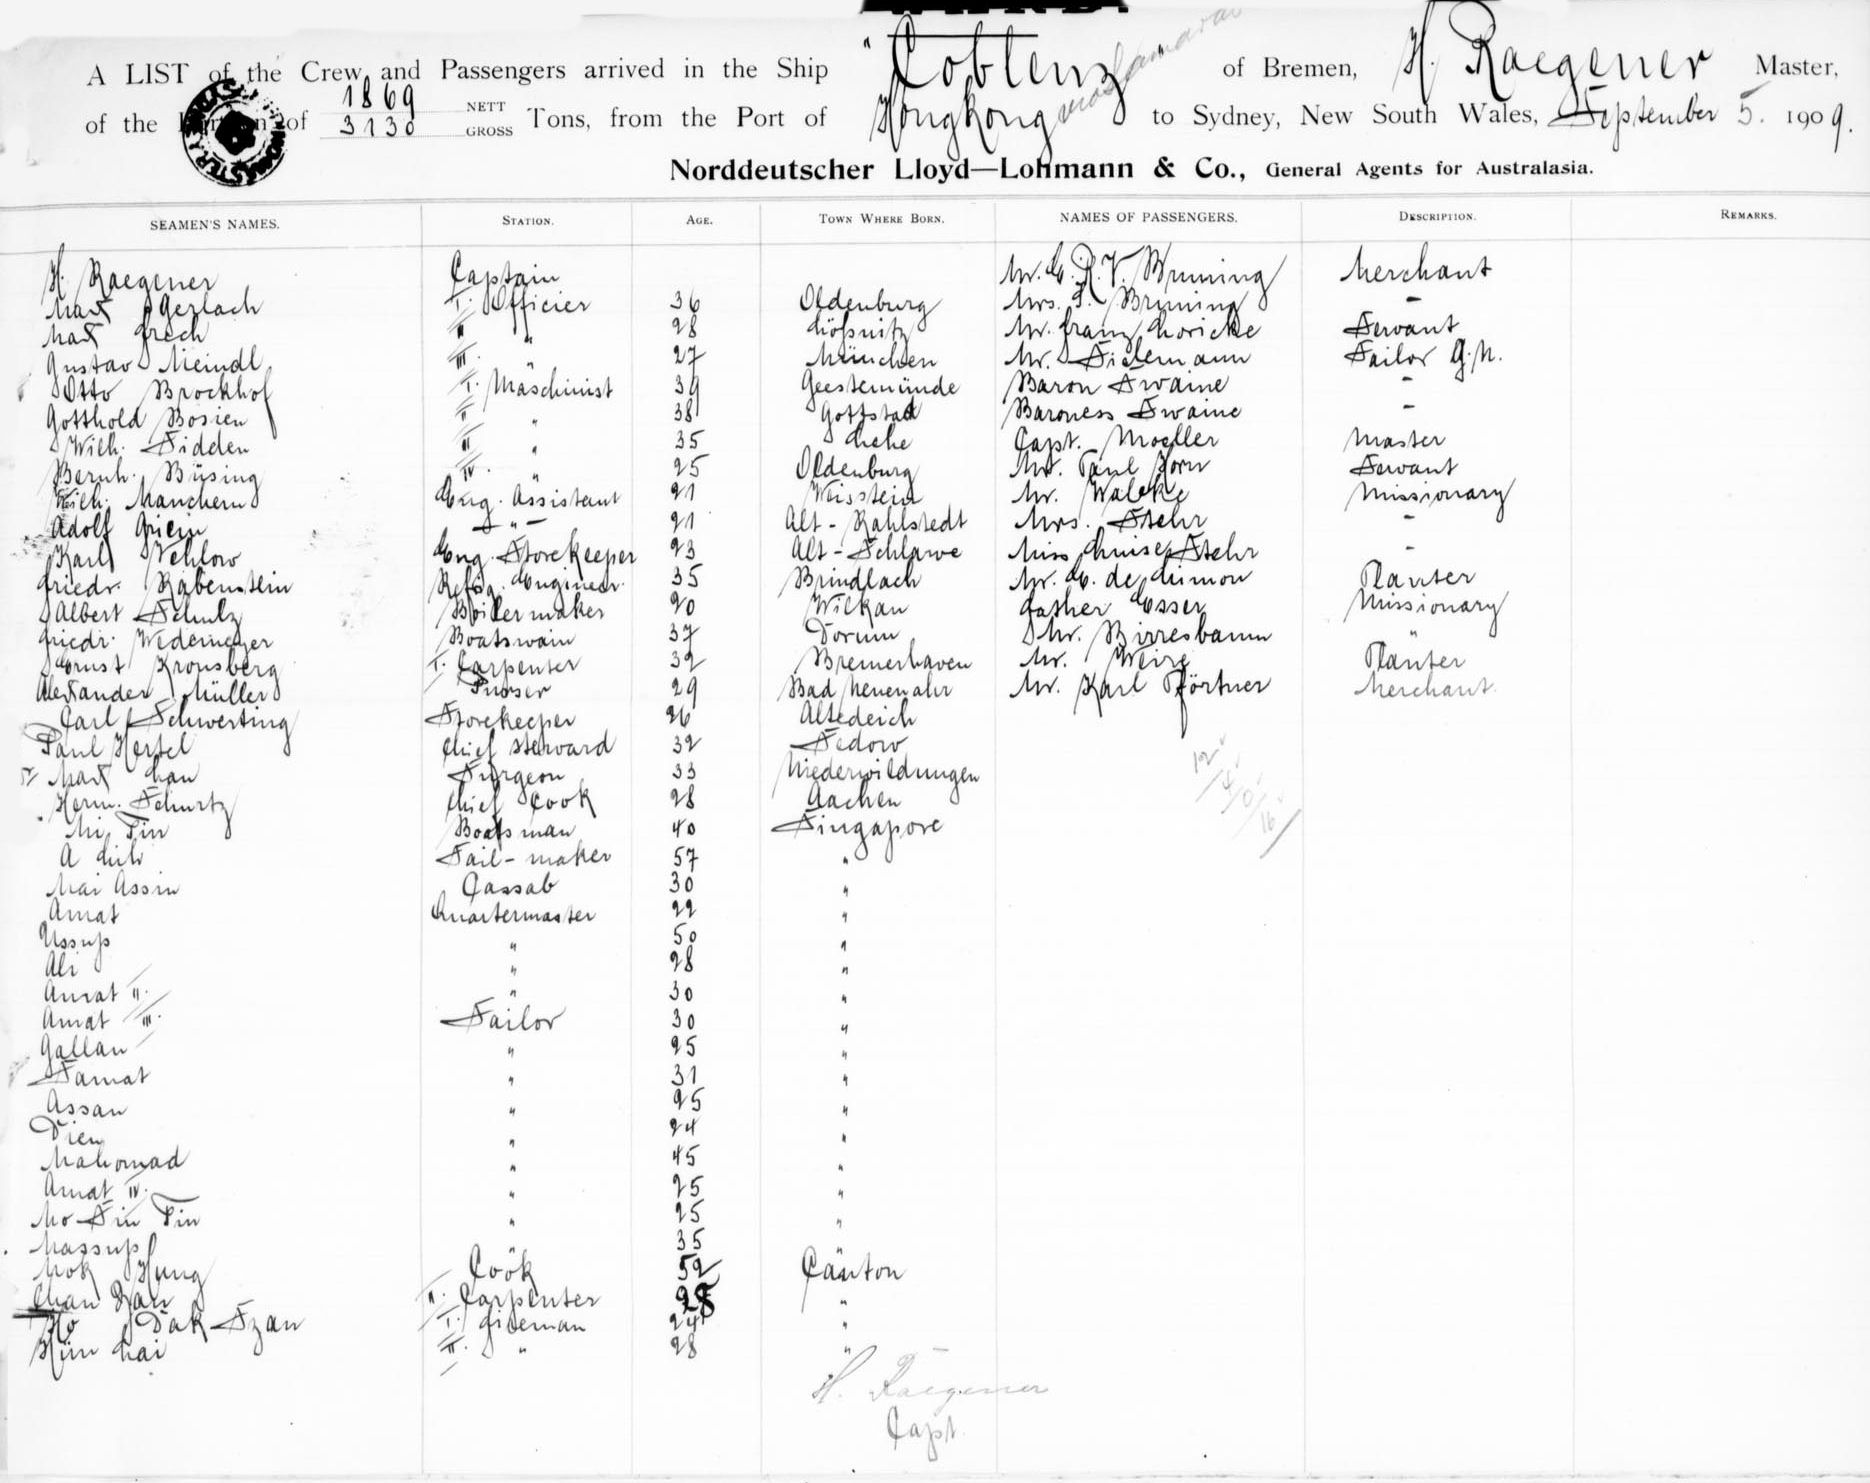 A LIST of the Crew and Passengers arrived in the Ship "Coblenz" of Bremen, H. Raegener Master,
of the of 1869 NETT 3130 GROSS Tons, from the Port of Hongkong to Sydney, New South Wales, September 5. 1909.
Norddeutscher Lloyd—Lohmann & Co., General Agents for Australasia.
SEAMEN'S NAMES. STATION. AGE. TOWN WHERE BORN. NAMES OF PASSENGERS. DESCRIPTION. REMARKS.
H. Raegener Captain Mr. C. R. V. Bruning Merchant
Max Gerlach I. Officier 36 Oldenburg Mrs. Bruning -
Max Grech II " 28 Lößnitz Mr. Franz Loricke Servant
Gustav Meindl III. " 27 München Mr. Sielemann Sailor G.N.
Otto Brockhof I. Maschinist 39 Geestemünde Baron Swaine -
Gotthold Bosien II " 38 Gottstad Baroness Swaine -
Wilh. Sidden III " 35 Lehe Capt. Moeller Master
Bernh. Büsing IV. " 25 Oldenburg Mr. Paul Horn Servant
Wilh. Manchern Eng. Assistant 21 Weisstein Mr. Walcke Missionary
Adolf Griem - " - 21 Alt-Rahlstedt Mrs. Stehr -
Karl Vehlow Eng. Storekeeper 23 Alt-Schlawe Miss Luise Stehr -
Friedr. Rabenstein Refrig. Engineer. 35 Brindlach Mr. E. de Limon Planter
Albert Schulz Boilermaker 20 Wilkau Father Esser Missionary
Friedr. Wedemeyer Boatswain 37 Dorum Mr. Birresbaum "
Ernst Kronsberg I. Carpenter 32 Bremerhaven Mr. Weire Planter
Alexander Müller Purser 29 Bad Neuenahr Mr. Karl Pförtner Merchant.
Carl Schwerting Storekeeper 26 Altedeich
Paul Hertel Chief Steward 32 Sedow
Max Lau Surgeon 33 Niederwildungen
Herm. Schurtz Chief Cook 28 Aachen
Mi Tin Boatsman 40 Singapore
A Lih Sail-maker 57 "
Mai Assin Cassab 30 "
Amat Quartermaster 22 "
Ussup " 50 "
Ali " 28 "
Amat II. " 30 "
Amat III. Sailor 30 "
Gallan " 25 "
Samat " 31 "
Assan " 25 "
Dien " 24 "
Mahomad " 45 "
Amat IV. " 25 "
Mo Sin Tin " 25 "
Massup " 35 "
Mok Hung Cook 52 Canton
Chan Kau II. Carpenter 28 "
Ho Dak Szan I. Fireman 24 "
Him Lai II. " 28 "
H. Raegener
Capt.